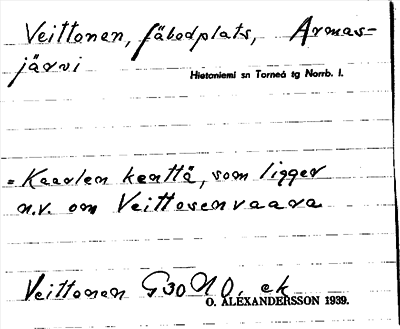 Veittonen, fäbodplats, Armas-
järvi
Hietaniemi sn Torneå tg Norrb. l.
= Kaarlen kenttä, som ligger
n.v. om Veittosenvaara
Veittonen G30 N O. ek
O. ALEXANDERSSON 1939.